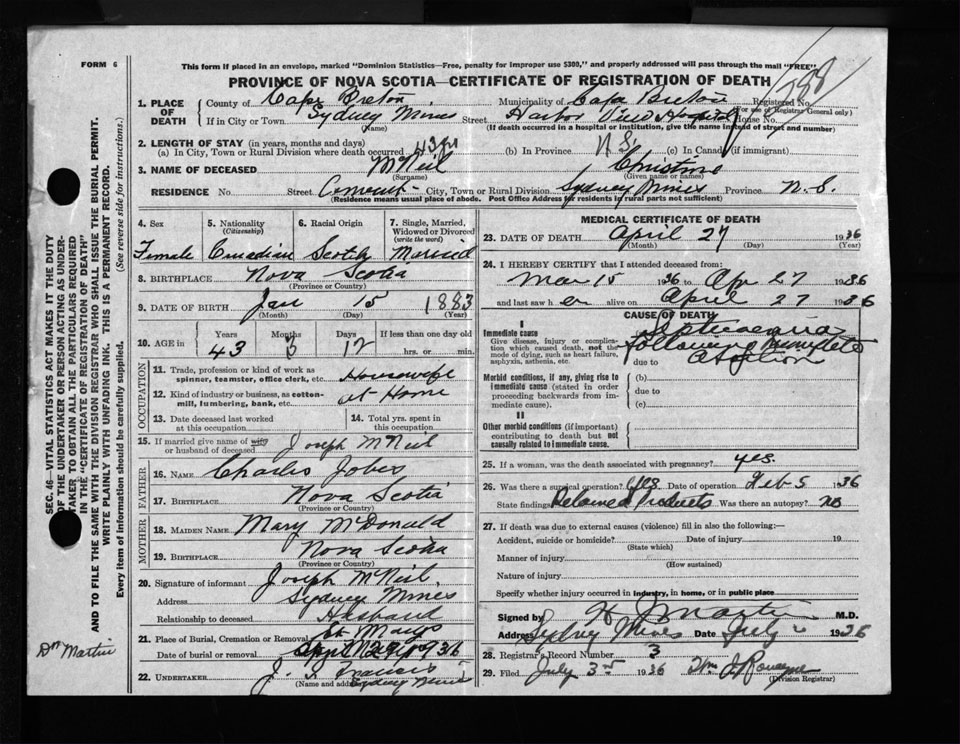 FORM 6
This form if placed in an envelope, marked "Dominion Statistics—Free, penalty for improper use $300," and properly addressed will pass through the mail "FREE"
PROVINCE OF NOVA SCOTIA—CERTIFICATE OF REGISTRATION OF DEATH
288
1. PLACE OF DEATH
County of Cape Breton Municipality of Cape Breton Registered No.
(For use of Registrar General only)
If in City or Town Sydney Mines Street Harbor View Hospital House No.
(Name) (If death occurred in a hospital or institution, give the name instead of street and number)
2. LENGTH OF STAY (in years, months and days)
(a) In City, Town or Rural Division where death occurred 43 (b) In Province N S (c) In Canada (if immigrant)
3. NAME OF DECEASED McNeil Christine
(Surname) (Given name or names)
RESIDENCE No. Street Crescent City, Town or Rural Division Sydney Mines Province N. S.
(Residence means usual place of abode. Post Office Address for residents in rural parts not sufficient)
4. Sex 5. Nationality (Citizenship) 6. Racial Origin 7. Single, Married, Widowed or Divorced (write the word)
Female Canadian Scotch Married
8. BIRTHPLACE Nova Scotia
(Province or Country)
9. DATE OF BIRTH Jan 15 1883
(Month) (Day) (Year)
10. AGE in Years Months Days If less than one day old
43 3 12 hrs. or min.
OCCUPATION
11. Trade, profession or kind of work as spinner, teamster, office clerk, etc. Housewife
12. Kind of industry or business, as cotton-mill, lumbering, bank, etc. at Home
13. Date deceased last worked at this occupation 14. Total yrs. spent in this occupation
15. If married give name of wife or husband of deceased Joseph McNeil
FATHER
16. NAME Charles Jobes
17. BIRTHPLACE Nova Scotia
(Province or Country)
MOTHER
18. MAIDEN NAME Mary McDonald
19. BIRTHPLACE Nova Scotia
(Province or Country)
20. Signature of informant Joseph McNeil,
Address Sydney Mines
Relationship to deceased Husband
21. Place of Burial, Cremation or Removal St Marys
Date of burial or removal April 29 1936
22. UNDERTAKER J. S.
(Name and address) Sydney Mines
MEDICAL CERTIFICATE OF DEATH
23. DATE OF DEATH April 27 1936
(Month) (Day) (Year)
24. I HEREBY CERTIFY that I attended deceased from:
Mar 15 1936 to Apr 27 1936
and last saw her alive on April 27 1936
CAUSE OF DEATH
I
Immediate cause Septicaemia
Give disease, injury or complication which caused death, not the mode of dying, such as heart failure, asphyxia, asthenia, etc.
following incomplete
due to abortion
Morbid conditions, if any, giving rise to immediate cause (stated in order proceeding backwards from immediate cause).
(b)
due to
(c)
II
Other morbid conditions (if important) contributing to death but not causally related to immediate cause.
25. If a woman, was the death associated with pregnancy? yes
26. Was there a surgical operation? yes Date of operation Feb 5 1936
State findings Retained Products Was there an autopsy? no
27. If death was due to external causes (violence) fill in also the following:—
Accident, suicide or homicide? Date of injury 19
(State which)
Manner of injury
(How sustained)
Nature of injury
Specify whether injury occurred in industry, in home, or in public place
Signed by H J Martin M.D.
Address Sydney Mines Date July 1936
28. Registrar's Record Number 3
29. Filed July 3rd 1936 Wm
(Division Registrar)
SEC. 46—VITAL STATISTICS ACT MAKES IT THE DUTY
OF THE UNDERTAKER OR PERSON ACTING AS UNDER-
TAKER TO OBTAIN ALL THE PARTICULARS REQUIRED
IN THE "CERTIFICATE OF REGISTRATION OF DEATH"
AND TO FILE THE SAME WITH THE DIVISION REGISTRAR WHO SHALL ISSUE THE BURIAL PERMIT.
WRITE PLAINLY WITH UNFADING INK. THIS IS A PERMANENT RECORD.
Every item of information should be carefully supplied. (See reverse side for instructions.)
Dr Martin